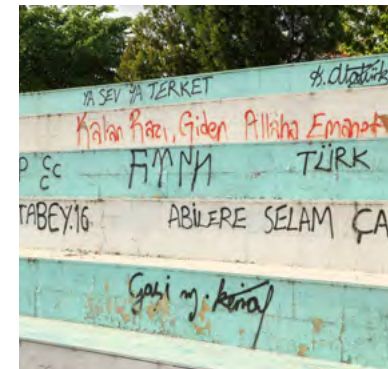 YA SEV YA TERKET K. Atatürk
Kalan Razı, Giden Allaha Emanet
TÜRK
TABEY.16 ABİLERE SELAM ÇA
Gazi M. Kemal